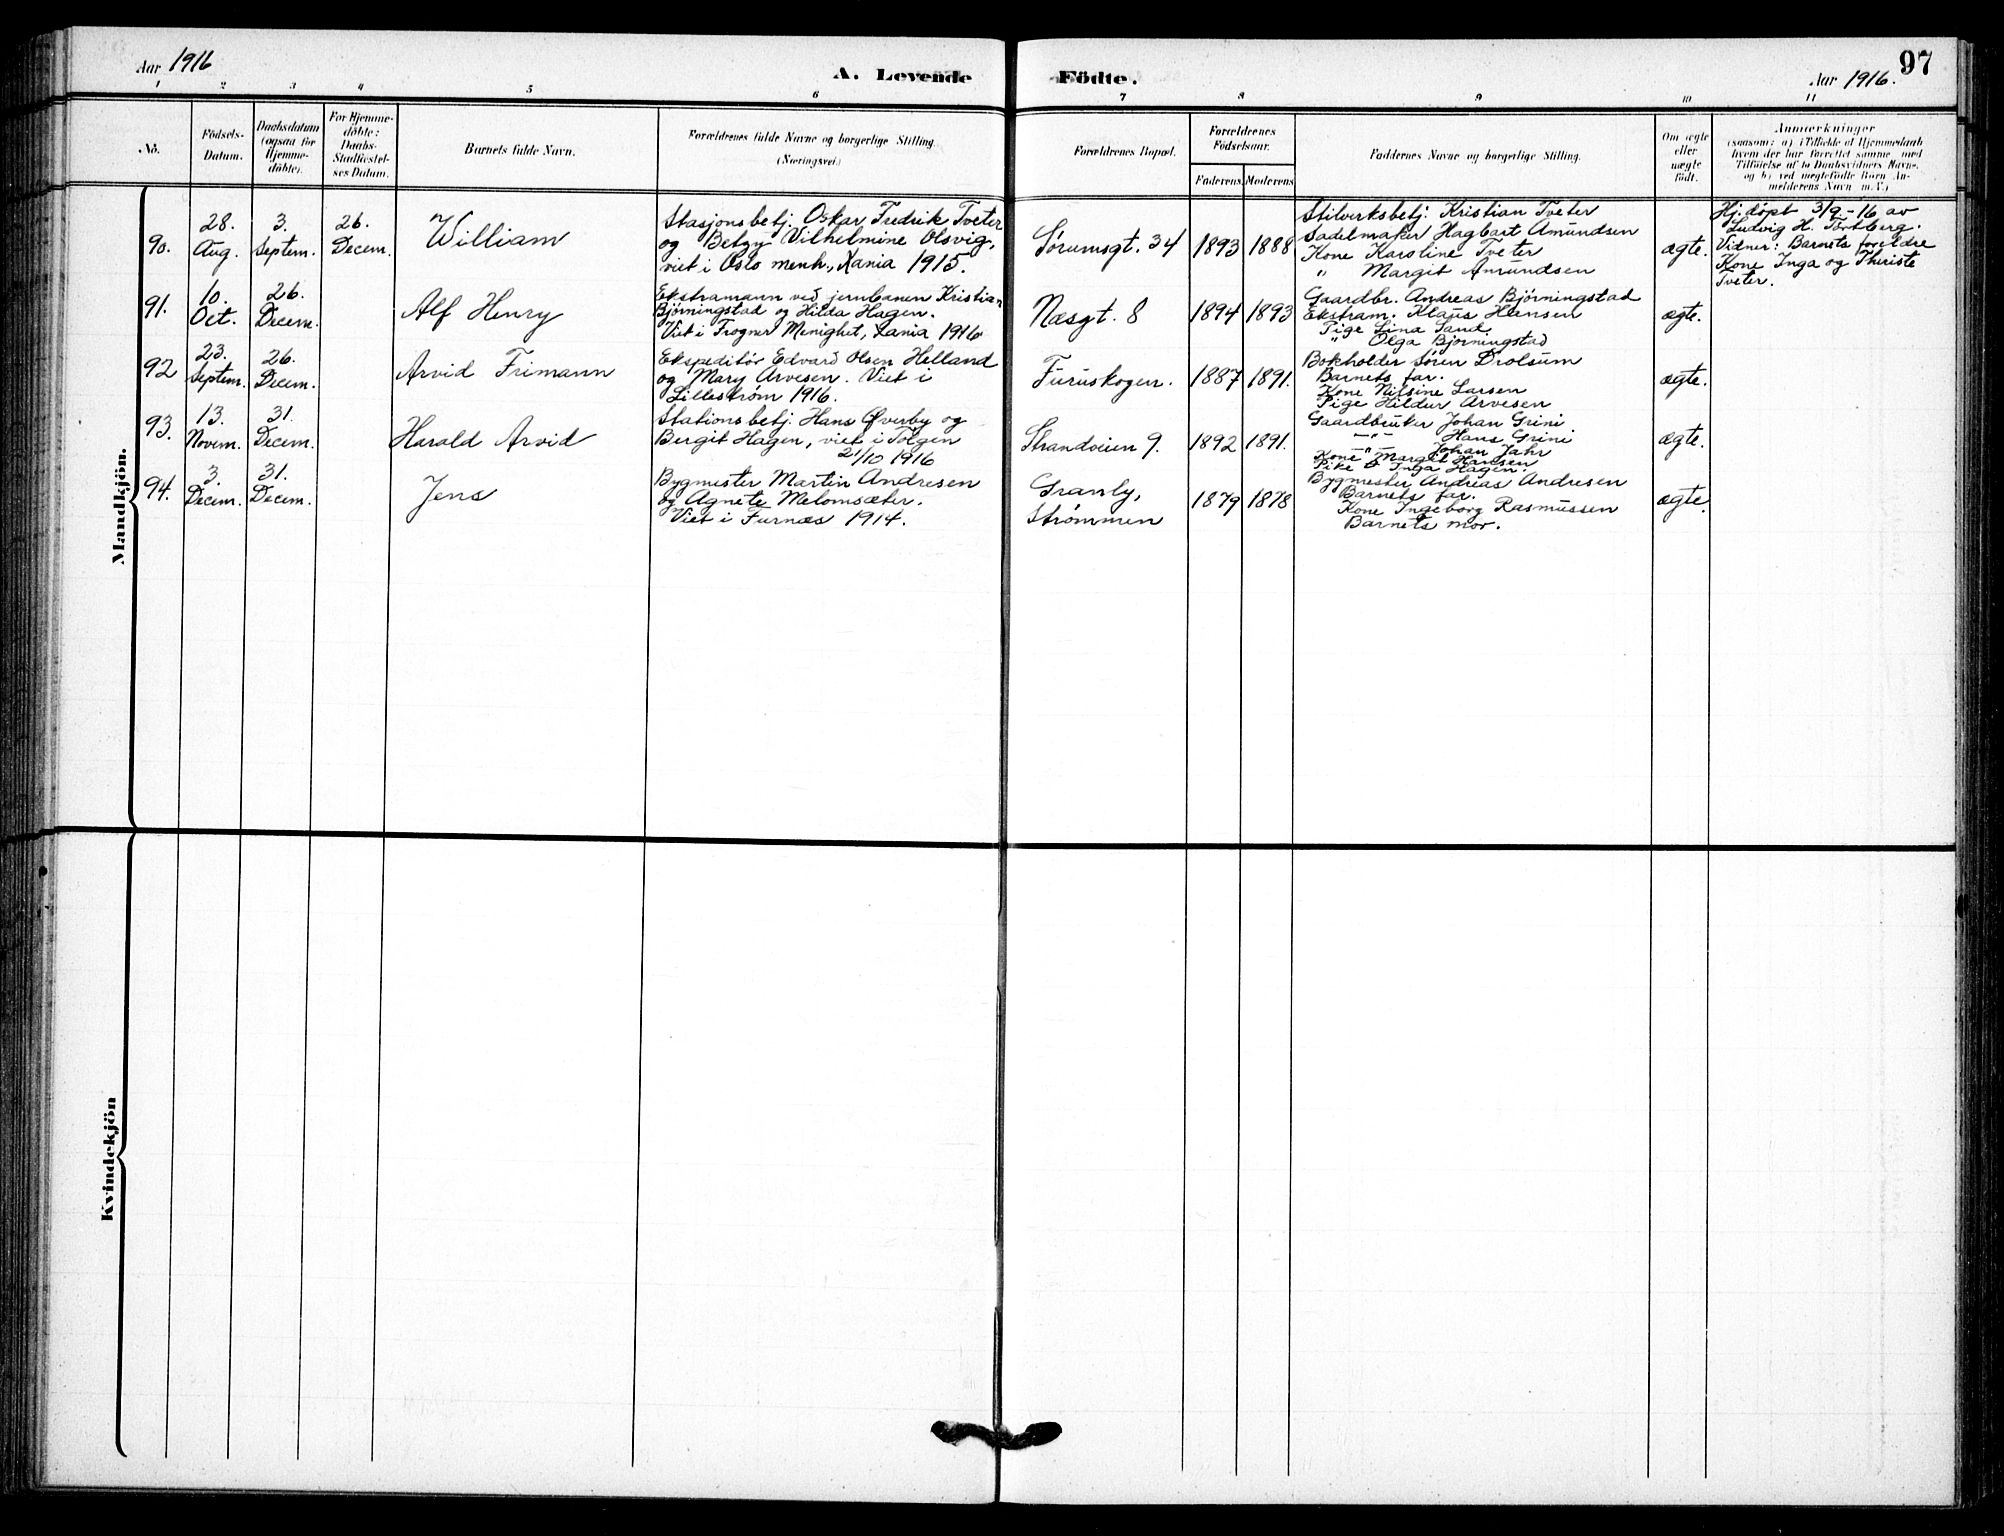 Aar 1916
A. Levende
Födte.
97
Aar 1916.
1 2 3 4 5 6 7 8 9 10 11
No.
Födsels-
Datum.
Daabsdatum
(ogsaa for
Hjemme-
döbte).
For Hjemme-
döbte:
Daabs-
Stadfæstel-
ses Datum.
Barnets fulde Navn.
Forældrenes fulde Navne og borgerlige Stilling.
(Næringsvei.)
Forældrenes Bopæl.
Forældrenes
Födselsaar.
Faderens. Moderens.
Faddernes Navne og borgerlige Stilling.
Om ægte
eller
uægte
födt.
Anmærkninger
(saasom: a) i Tilfælde af Hjemmedaab
hvem der har forrettet samme med
Tilföielse af to Daabsvidners Navne.
og b) ved uægtefödte Barn An-
melderens Navn m. V.)
Mandkjön.
90.
28.
Aug.
3.
Septem.
26.
Decem.
William
Stasjonsbetj. Oskar Fredrik Tveter
og Betzy Vilhelmine Olsvig,
viet i Oslo menh., Kania 1915.
Sørumsgt. 34
1893
1888
Stilverksbetj. Kristian Tveter
Sadelmaker Hagbart Amundsen
Kone Karoline Tveter
" Margit Amundsen
ægte.
Hj.døpt 3/9-16 av
Ludvig H. Tortberg.
Vidner: Barnets foreldre
Kone Inga og Theriste
Tveter.
91.
10.
Oct.
26.
Decem.
Alf Henry
Ekstramann ved jernbanen Kristian
Bjørningstad og Hilda Hagen.
Viet i Frogner Menighet, Kania 1916
Næsgt. 8
1894
1893
Gaardbr. Andreas Bjørningstad
Ekstram. Klaus Hansen
Pige Lina Sand
" Olga Bjørningstad
ægte.
92
23.
Septem.
26.
Decem.
Arvid Frimann
Ekspeditør Edvard Olsen Helland
og Mary Arvesen. Viet i
Lillestrøm 1916.
Furuskogen.
1887
1891.
Bokholder Søren Drolsum
Barnets far.
Kone Nilsine Larsen
Pige Hildur Arvesen
ægte.
93.
13.
Novem.
31.
Decem.
Harald Arvid
Stationsbetj. Hans Øverby og
Bergit Hagen, viet i Tolgen
21/10 1916
Strandveien 9.
1892
1891.
Gaardbruker Johan Grini
-"- Hans Grini
-"- Johan Jahr
Kone Margit Hansen
Pike Inga Hagen.
ægte.
94.
3.
Decem.
31.
Decem.
Jens
Bygmester Martin Andresen
og Agnete Melomsæter.
Viet i Furnæs 1914.
Granly,
Strømmen
1879
1878
Bygmester Andreas Andresen
Barnets far.
Kone Ingeborg Rasmussen
Barnets mor.
ægte.
Kvindekjön